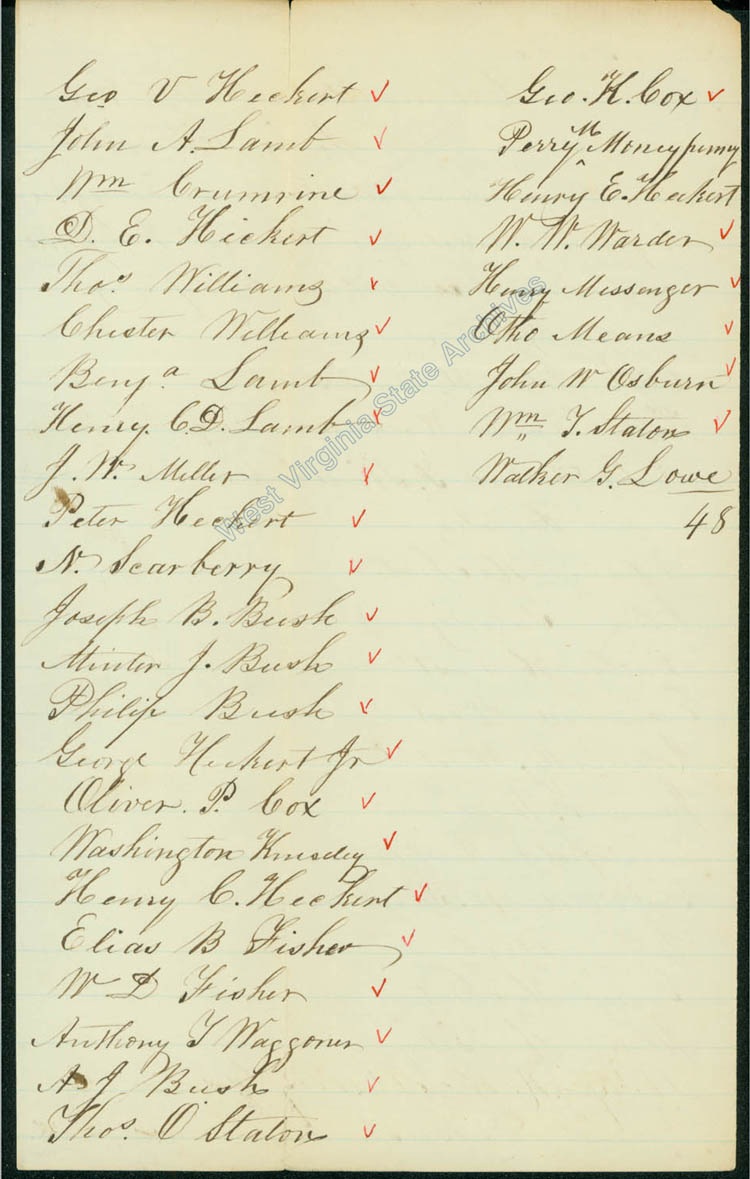 Geo V Heckert ✓
John A. Lamb ✓
Wm Crumrine ✓
D. E. Heckert ✓
Thos. Williams ✓
Chester Williams ✓
Benja Lamb ✓
Henry C. D. Lamb ✓
J. W. Miller ✓
Peter Heckert ✓
N. Scarberry ✓
Joseph B. Bush ✓
Minter J. Bush ✓
Philip Bush ✓
George Heckert Jr ✓
Oliver. P. Cox ✓
Washington ✓
Henry C. Heckert ✓
Elias B Fisher ✓
W D Fisher ✓
Anthony T Waggoner ✓
A J Bush ✓
Thos. O Staton ✓
Geo. K. Cox ✓
Perry M Moneypenny
Henry E. Heckert
W. W. Warder ✓
Henry Messenger ✓
Otho Means ✓
John W Osburn ✓
Wm T. Staton ✓
Walker G. Lowe
48
West Virginia State Archives